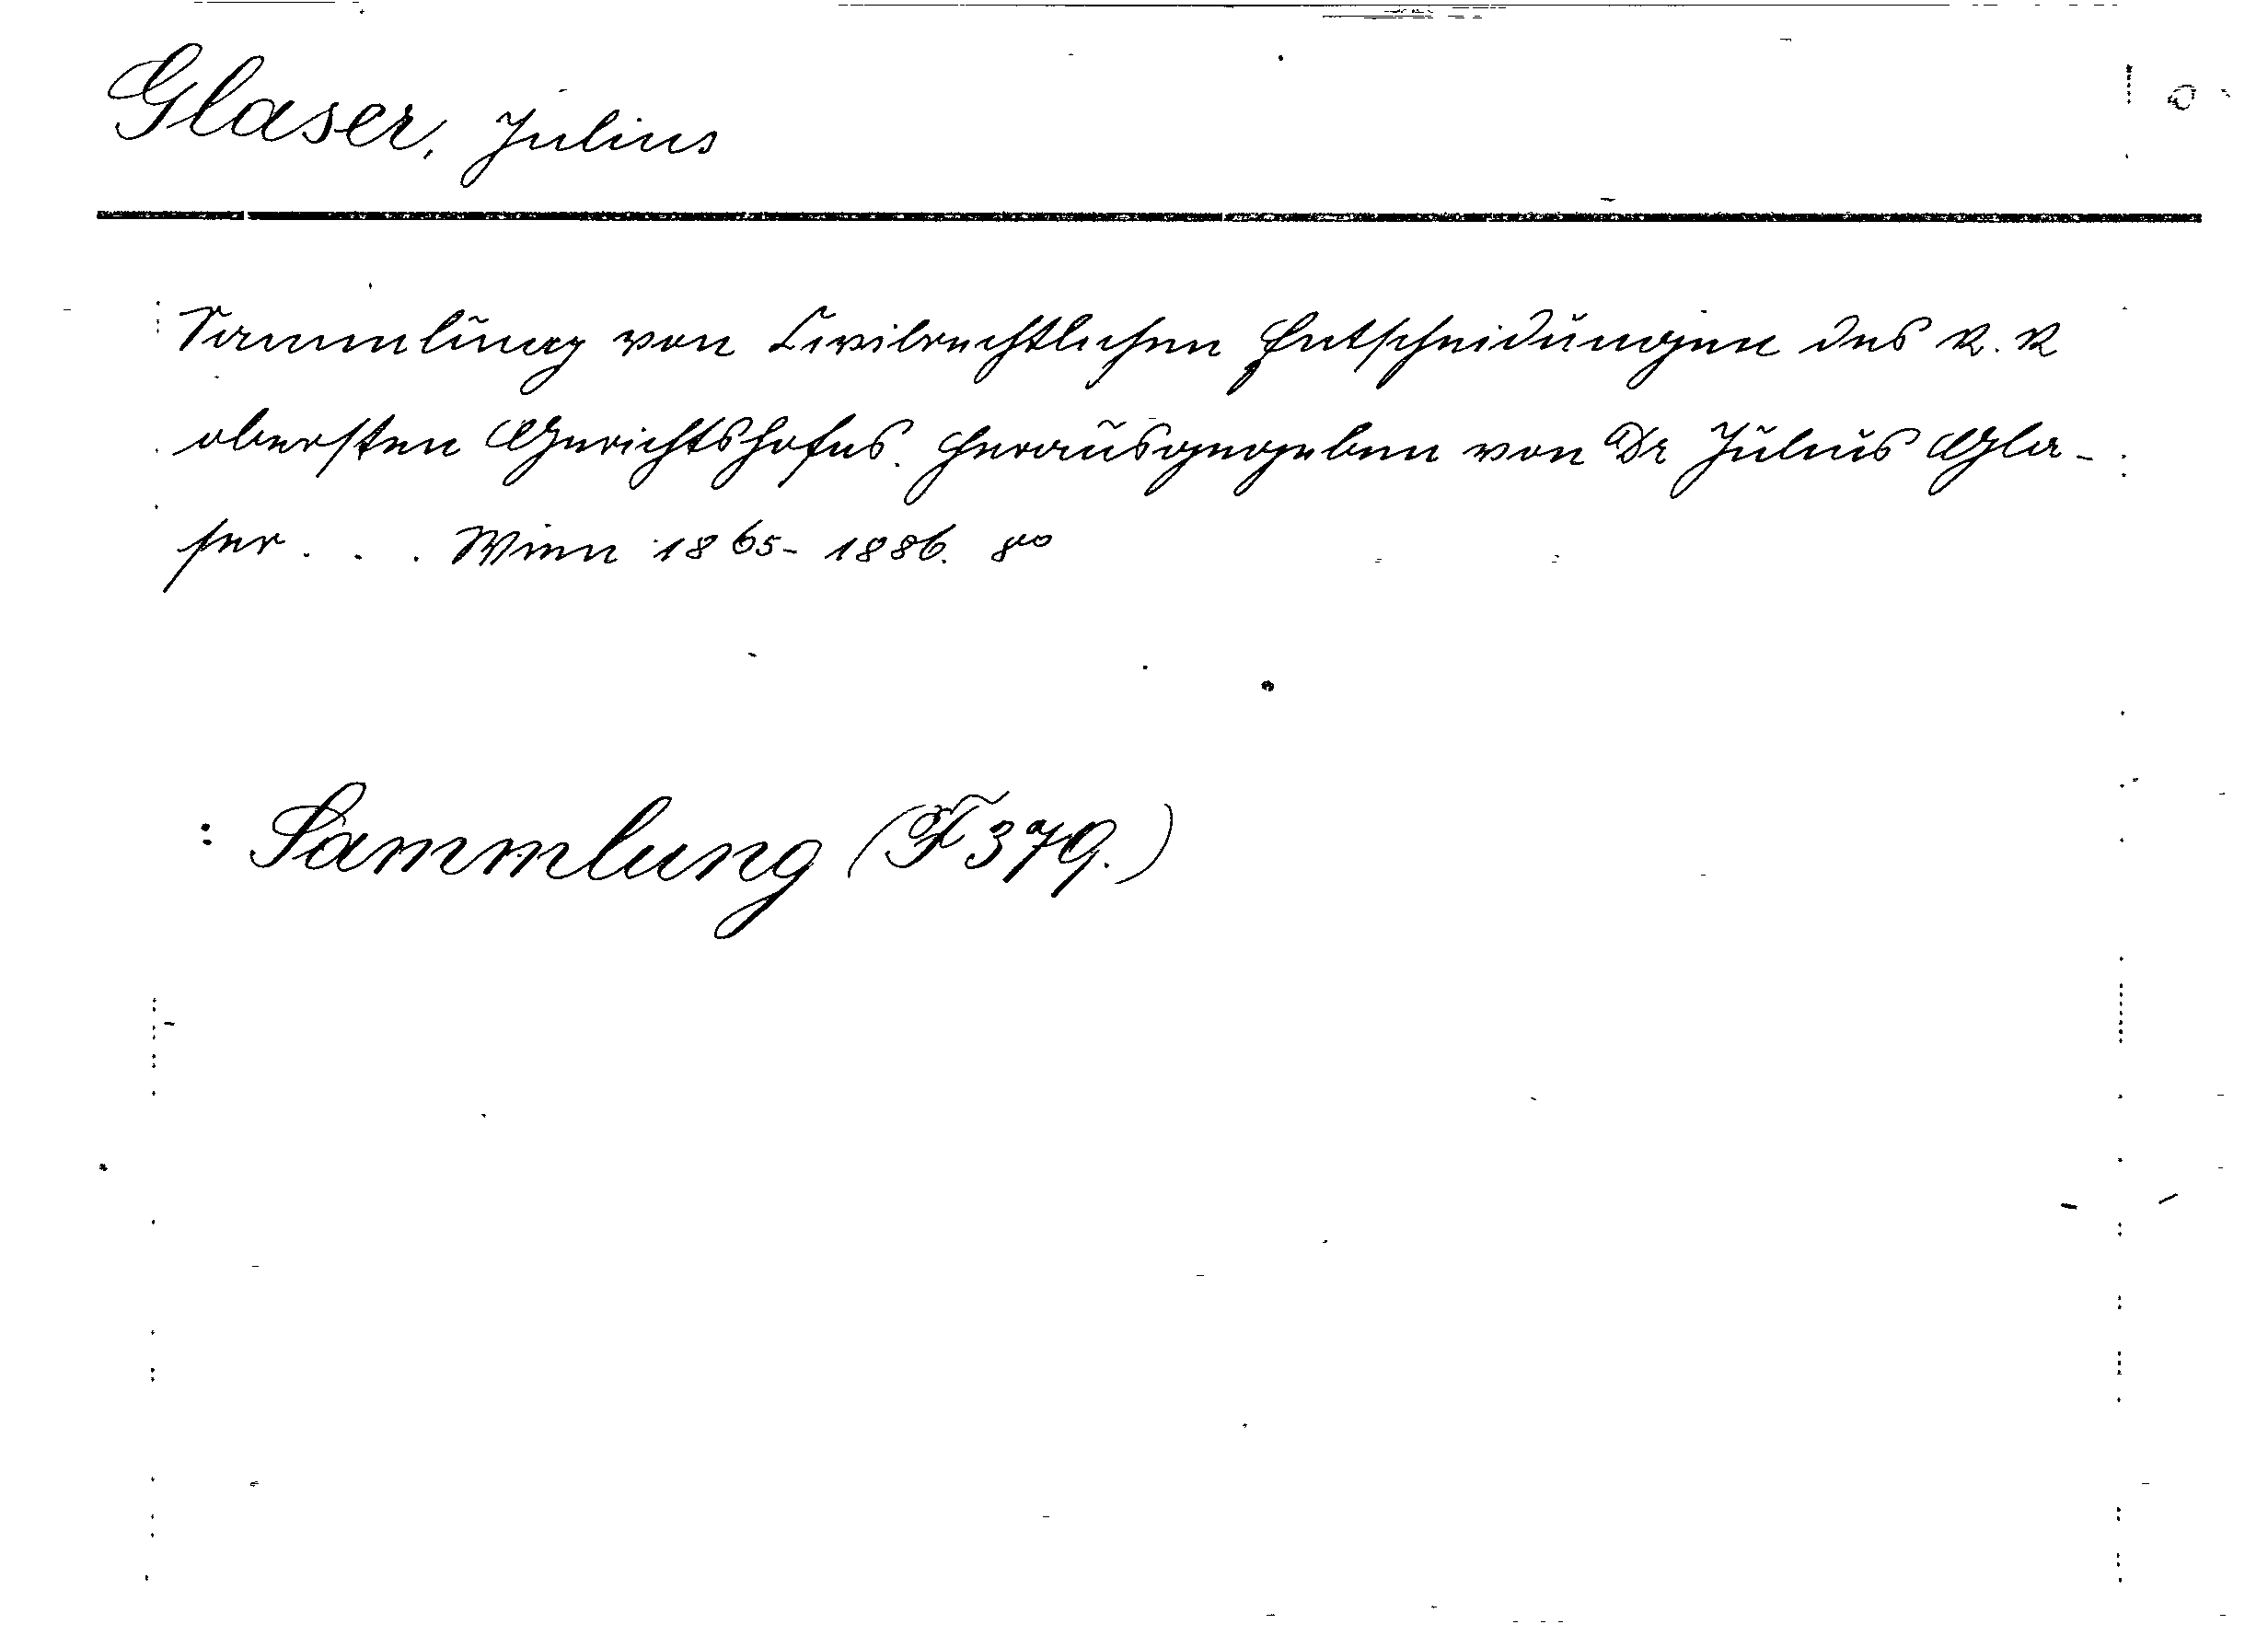 Glaser, Julius
Sammlung von Civilrechtlichen Entscheidungen des k. k
obersten Gerichtshofes. Herausgegeben von Dr Julius Gla-
ser . . . Wien 1865-1886. 8vo
: Sammlung (F 379.)